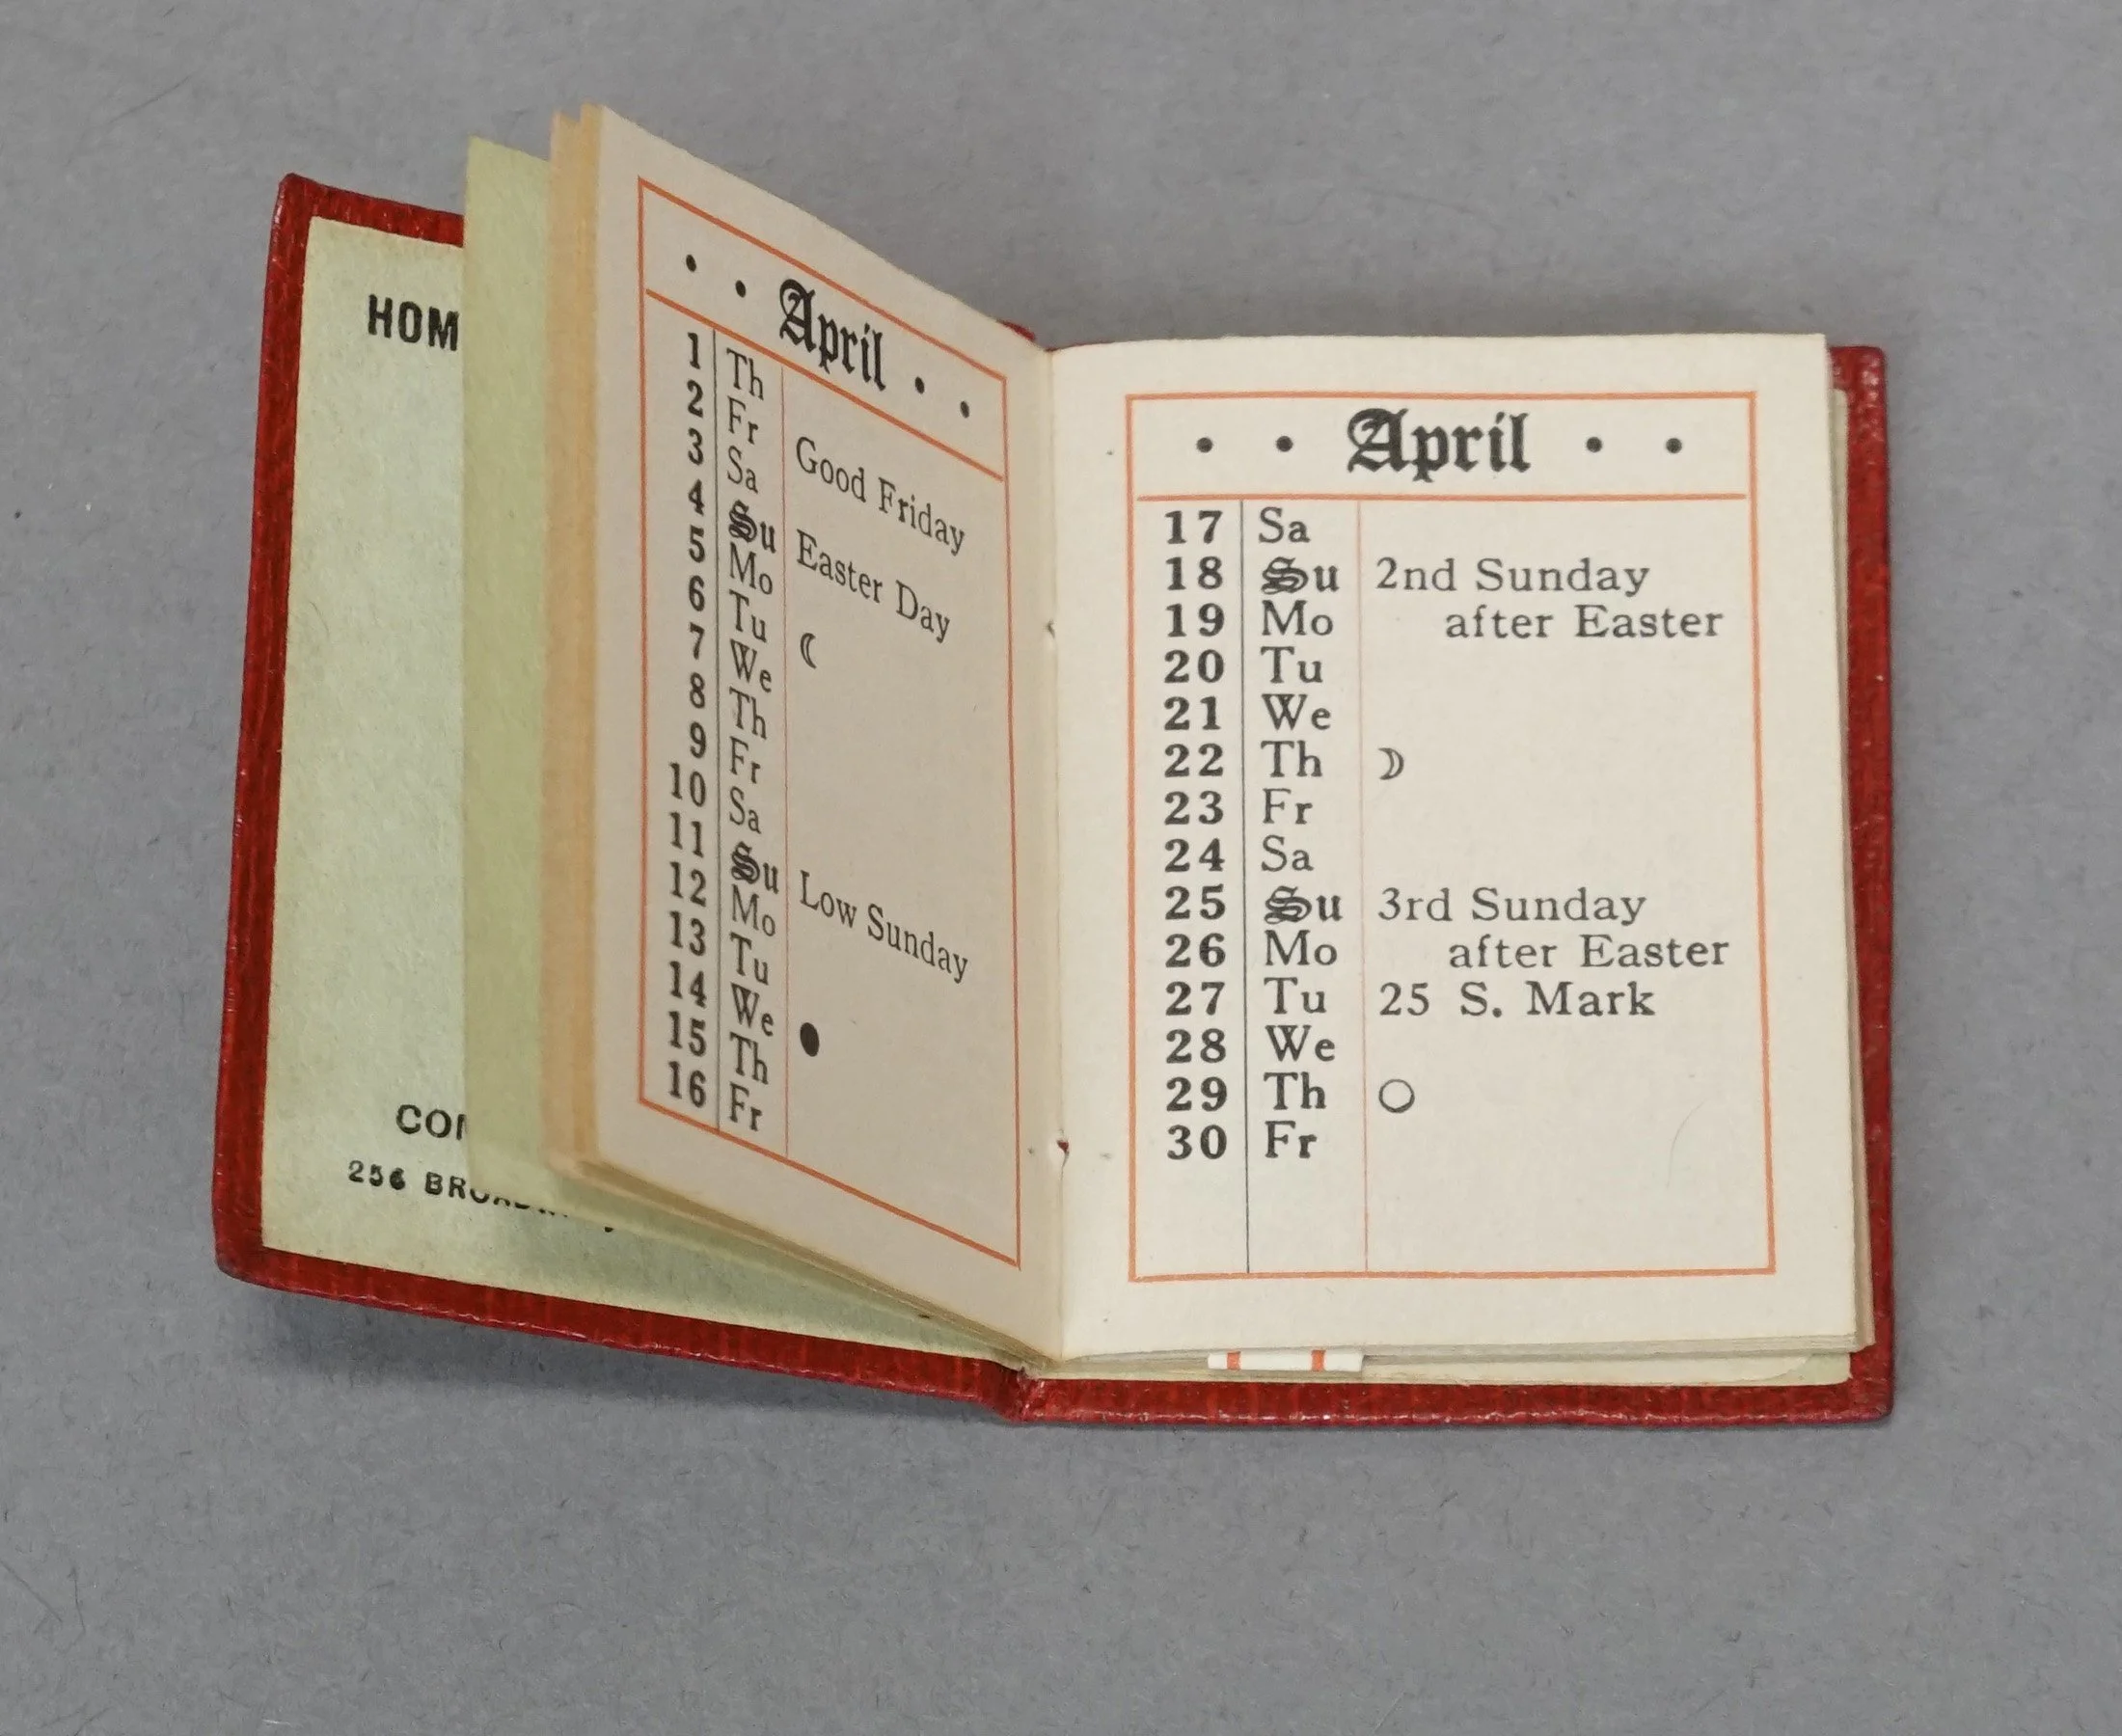 HOM
256
• • April • •
1 Th
2 Fr Good Friday
3 Sa
4 Su Easter Day
5 Mo
6 Tu ☾
7 We
8 Th
9 Fr
10 Sa
11 Su Low Sunday
12 Mo
13 Tu
14 We ●
15 Th
16 Fr
• • April • •
17 Sa
18 Su 2nd Sunday
19 Mo after Easter
20 Tu
21 We
22 Th ☽
23 Fr
24 Sa
25 Su 3rd Sunday
26 Mo after Easter
27 Tu 25 S. Mark
28 We
29 Th ○
30 Fr